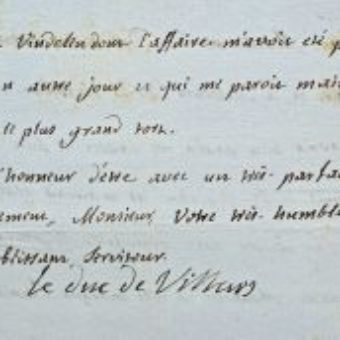 Vindelin dont l'affaire m'avoit eté p
n autre jour ce qui me paroit m
le plus grand tort.
'honneur d'etre avec un trés parfa
ement, Monsieur, Votre trés humble
béissant Serviteur.
le duc de Villars